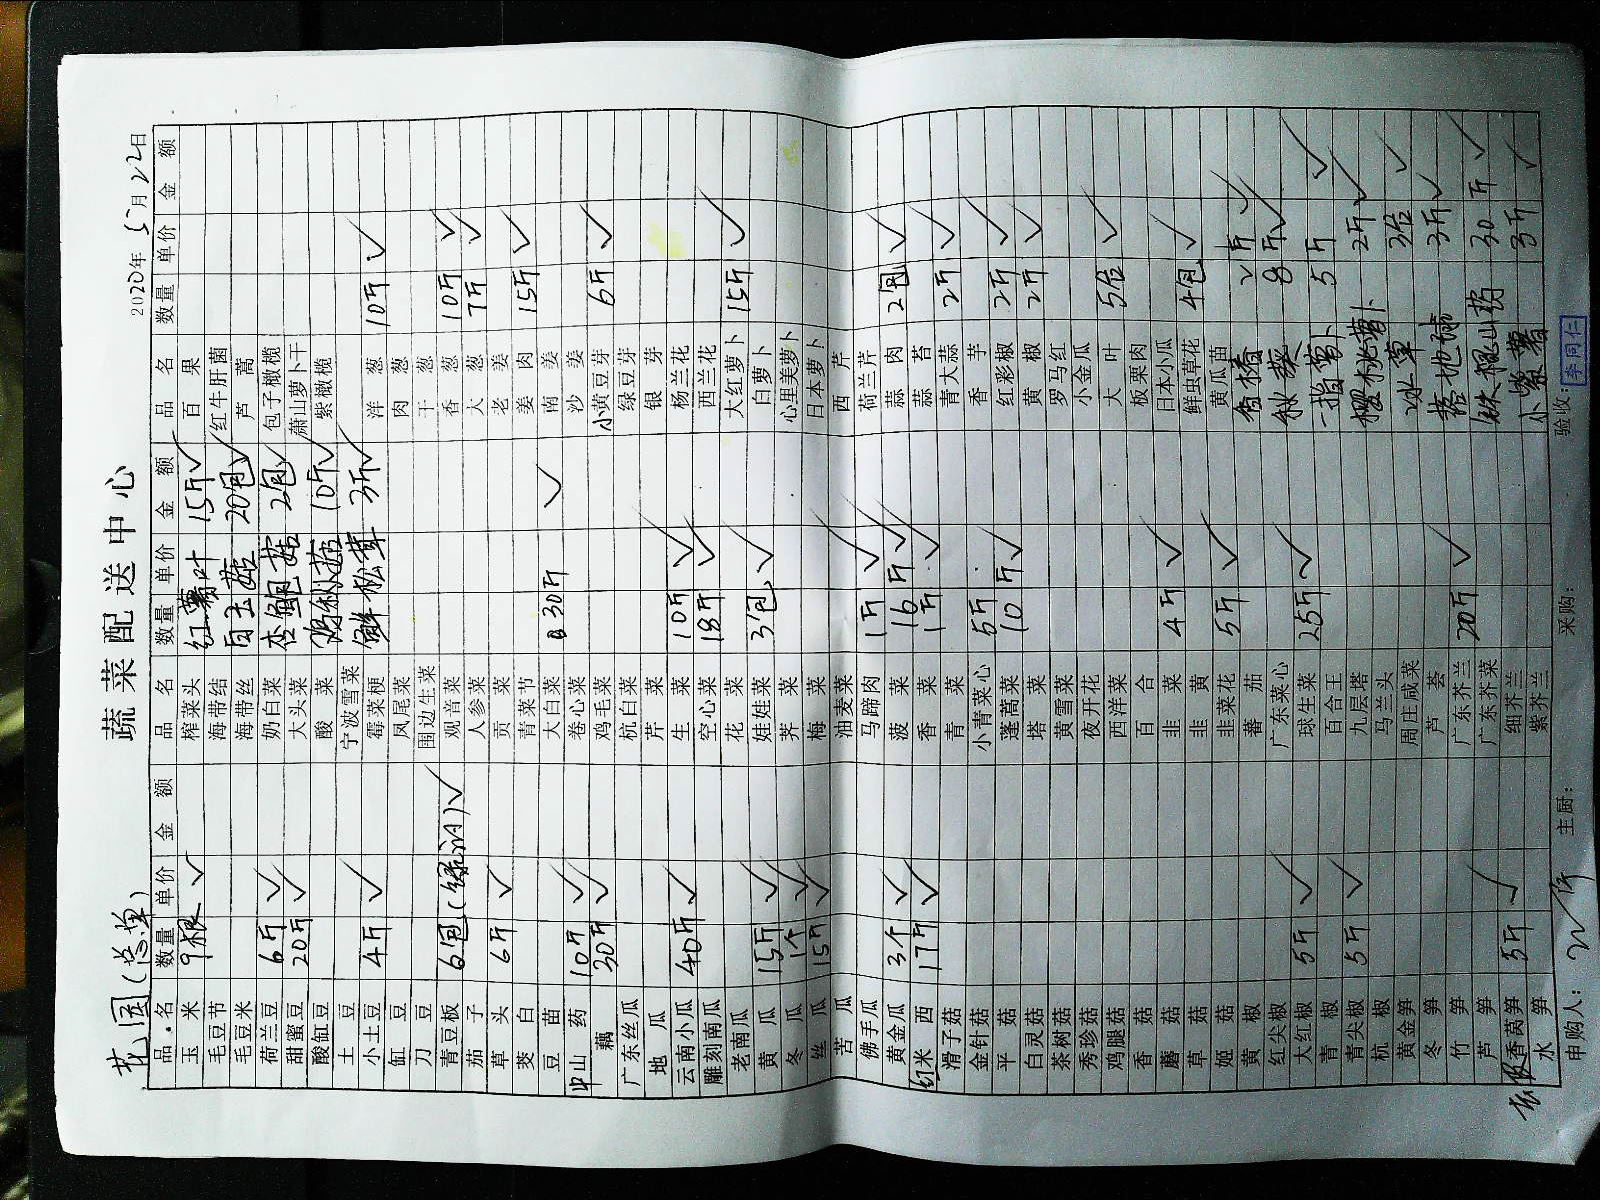 花园(总单)
蔬菜配送中心
2020年 5月22日
品名 数量 单价 金额 品名 数量 单价 金额 品名 数量 单价 金额
玉米 9根 榨菜头 红薯叶 15斤 百果
毛豆节 海带结 红牛肝菌
毛豆米 海带丝 白玉菇 20包 芦蒿
荷兰豆 6斤 奶白菜 杏鲍菇 2包 包子橄榄
甜蜜豆 20斤 大头菜 萧山萝卜干
酸缸豆 酸菜 鸡枞菇 10斤 紫橄榄
土豆 宁波雪菜
小土豆 4斤 霉菜梗 鲜松茸 3斤 洋葱 10斤
缸豆 凤尾菜 肉葱
刀豆 围边生菜 干葱
青豆板 6包(绿润) 观音菜 香葱 10斤
茄子 人参菜 大葱 7斤
草头 6斤 贡菜 老姜
茭白 青菜节 姜肉 15斤
豆苗 大白菜 30斤 南姜
山药 10斤 卷心菜 沙姜
藕 30斤 鸡毛菜 小黄豆芽 6斤
广东丝瓜 杭白菜 绿豆芽
地瓜 芹菜 银芽
云南小瓜 40斤 生菜 10斤 杨兰花
雕刻南瓜 空心菜 18斤 西兰花
老南瓜 花菜 大红萝卜 15斤
黄瓜 15斤 娃娃菜 3包 白萝卜
冬瓜 1个 荠菜 心里美萝卜
丝瓜 15斤 梅菜 日本萝卜
苦瓜 油麦菜 西芹
佛手瓜 马蹄肉 1斤 荷兰芹
黄金瓜 3个 菠菜 16斤 蒜肉 2包
红米西 17斤 香菜 1斤 蒜苔
滑子菇 青菜 青大蒜 2斤
金针菇 小青菜心 5斤 香芋
平菇 蓬蒿菜 10斤 红彩椒 2斤
白灵菇 塔菜 黄椒 2斤
茶树菇 黄雪菜 罗马红
秀珍菇 夜开花 小金瓜
鸡腿菇 西洋菜 大叶 5台
香菇 百合 板栗肉
蘑菇 韭菜 4斤 日本小瓜
草菇 韭黄 鲜虫草花 4包
姬菇 韭菜花 5斤 黄瓜苗
黄椒 蕃茄 香椿 2斤
红尖椒 广东菜心 秋葵 8斤
大红椒 5斤 球生菜 25斤 一指萝卜 5斤
青椒 百合王
青尖椒 5斤 九层塔 樱桃萝卜 2斤
杭椒 马兰头
黄金笋 周庄咸菜 冰草 3台
冬笋 芦荟 3斤
竹笋 广东芥兰 20斤
芦笋 广东芥菜 铁棍山药 30斤
香莴笋 5斤 细芥兰
水笋 紫芥兰 小紫薯 3斤
申购人： 主厨： 采购： 验收： 李同仁